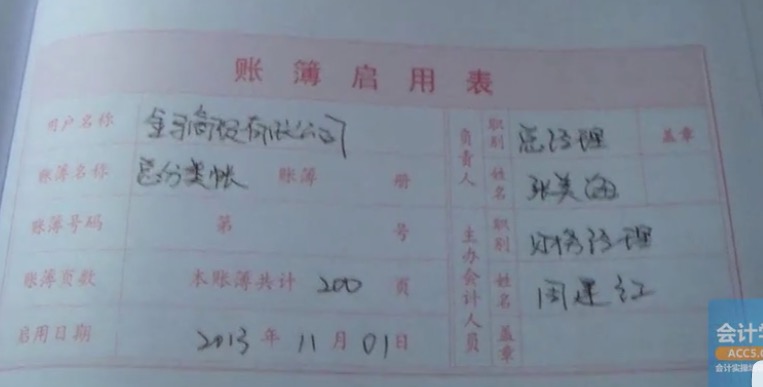 账簿启用表
用户名称 金马商贸有限公司 负责人 职别 总经理 盖章
账簿名称 总分类帐 账簿 册 姓名 张美海
账簿号码 第 号 主办会计人员 职别 财务经理
账簿页数 本账簿共计 200 页 姓名 周建红
启用日期 2013 年 11 月 01 日 盖章
会计学
ACC5.C